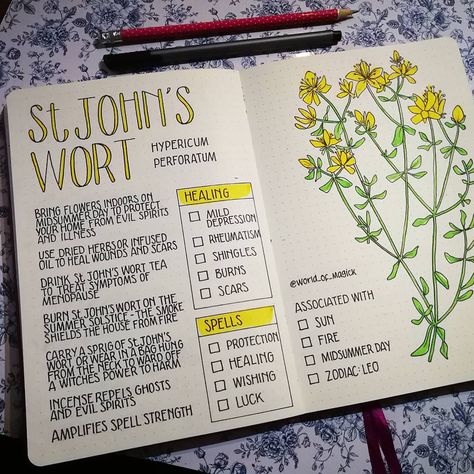 St JOHN'S
WORT
HYPERICUM
PERFORATUM
BRING FLOWERS INDOORS ON
MIDSUMMER DAY TO PROTECT
YOUR HOME FROM EVIL SPIRITS
AND ILLNESS
USE DRIED HERBS OR INFUSED
OIL TO HEAL WOUNDS AND SCARS
DRINK St. JOHN'S WORT TEA
TO TREAT SYMPTOMS OF
MENOPAUSE
BURN St JOHN'S WORT ON THE
SUMMER SOLSTICE - THE SMOKE
SHIELDS THE HOUSE FROM FIRE
CARRY A SPRIG OF St JOHN'S
WORT OR WEAR IN A BAG HUNG
FROM THE NECK TO WARD OFF
A WITCHES POWER TO HARM
INCENSE REPELS GHOSTS
AND EVIL SPIRITS
AMPLIFIES SPELL STRENGTH
HEALING
MILD
DEPRESSION
RHEUMATISM
SHINGLES
BURNS
SCARS
SPELLS
PROTECTION
HEALING
WISHING
LUCK
@WORLD_OF_MAGICK
ASSOCIATED WITH
SUN
FIRE
MIDSUMMER DAY
ZODIAC: LEO